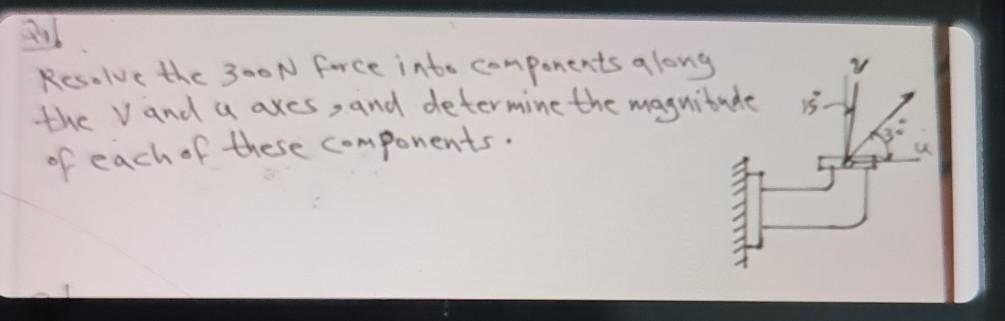 Q1/
Resolve the 300N force into components along
the V and u axes, and determine the magnitude
of each of these components.
v
15°
30°
u